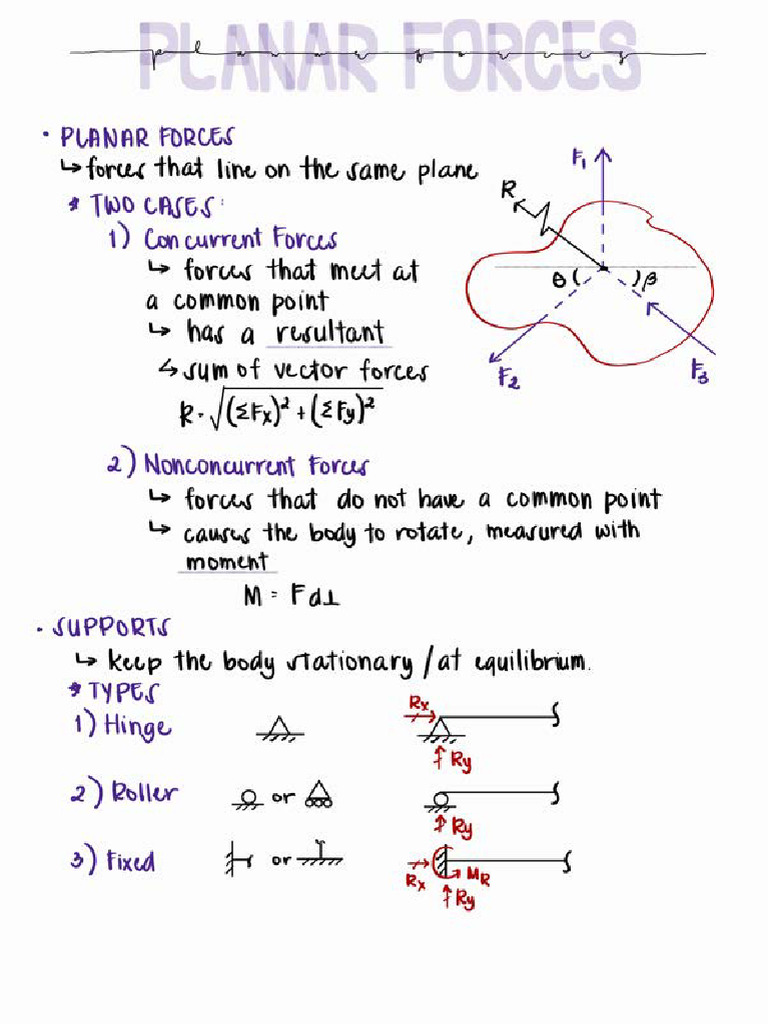 PLANAR FORCES
planar forces
• PLANAR FORCES
↳ forces that line on the same plane
* TWO CASES:
1) Concurrent Forces
↳ forces that meet at
a common point
↳ has a resultant
↳ sum of vector forces
R = √(ΣFx)² + (ΣFy)²
F₁
R
θ
β
F₂
F₃
2) Nonconcurrent Forces
↳ forces that do not have a common point
↳ causes the body to rotate, measured with
moment
M = Fd⊥
• SUPPORTS
↳ keep the body stationary / at equilibrium.
* TYPES
1) Hinge
Rx
Ry
2) Roller
or
Ry
3) Fixed
or
Rx
MR
Ry